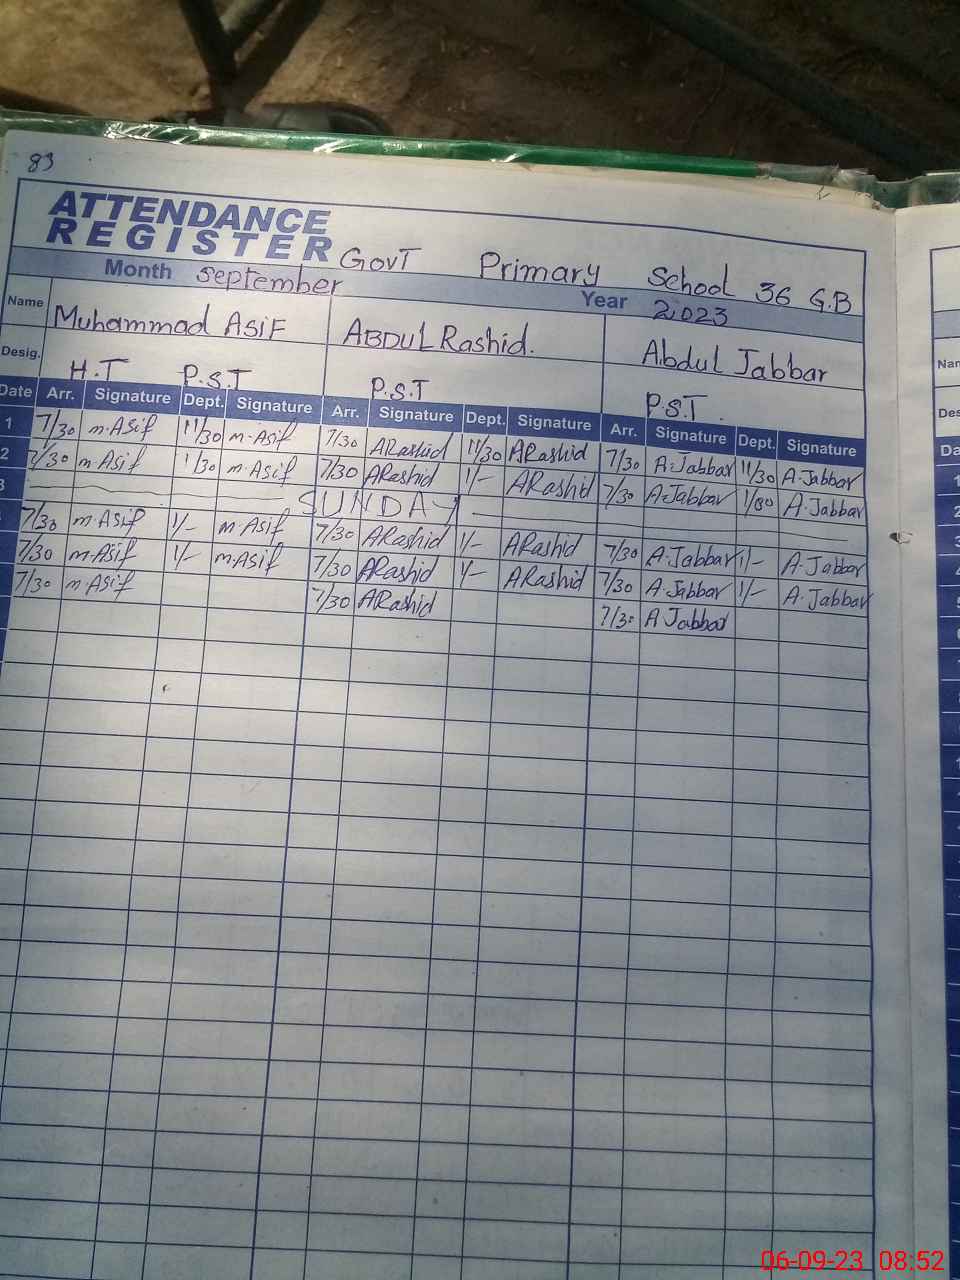 83
ATTENDANCE
REGISTER GovT Primary School 36 G.B
Month September Year 2023
Name Muhammad Asif ABDUL Rashid. Abdul Jabbar
Desig. H.T P.S.T P.S.T P.S.T.
Date Arr. Signature Dept. Signature Arr. Signature Dept. Signature Arr. Signature Dept. Signature
1 7/30 m.Asif 11/30 m.Asif 7/30 ARashid 11/30 ARashid 7/30 A.Jabbar 11/30 A.Jabbar
2 7/30 m.Asif 1/30 m.Asif 7/30 ARashid 1/- ARashid 7/30 A.Jabbar A.Jabbar
3 SUNDAY
7/30 m.Asif 1/- m.Asif 7/30 ARashid 1/- ARashid 7/30 A.Jabbar 1/- A.Jabbar
7/30 m.Asif 1/- m.Asif 7/30 ARashid 1/- ARashid 7/30 A.Jabbar 1/- A.Jabbar
7/30 m.Asif 7/30 ARashid 7/30 A Jabbar
06-09-23 08:52